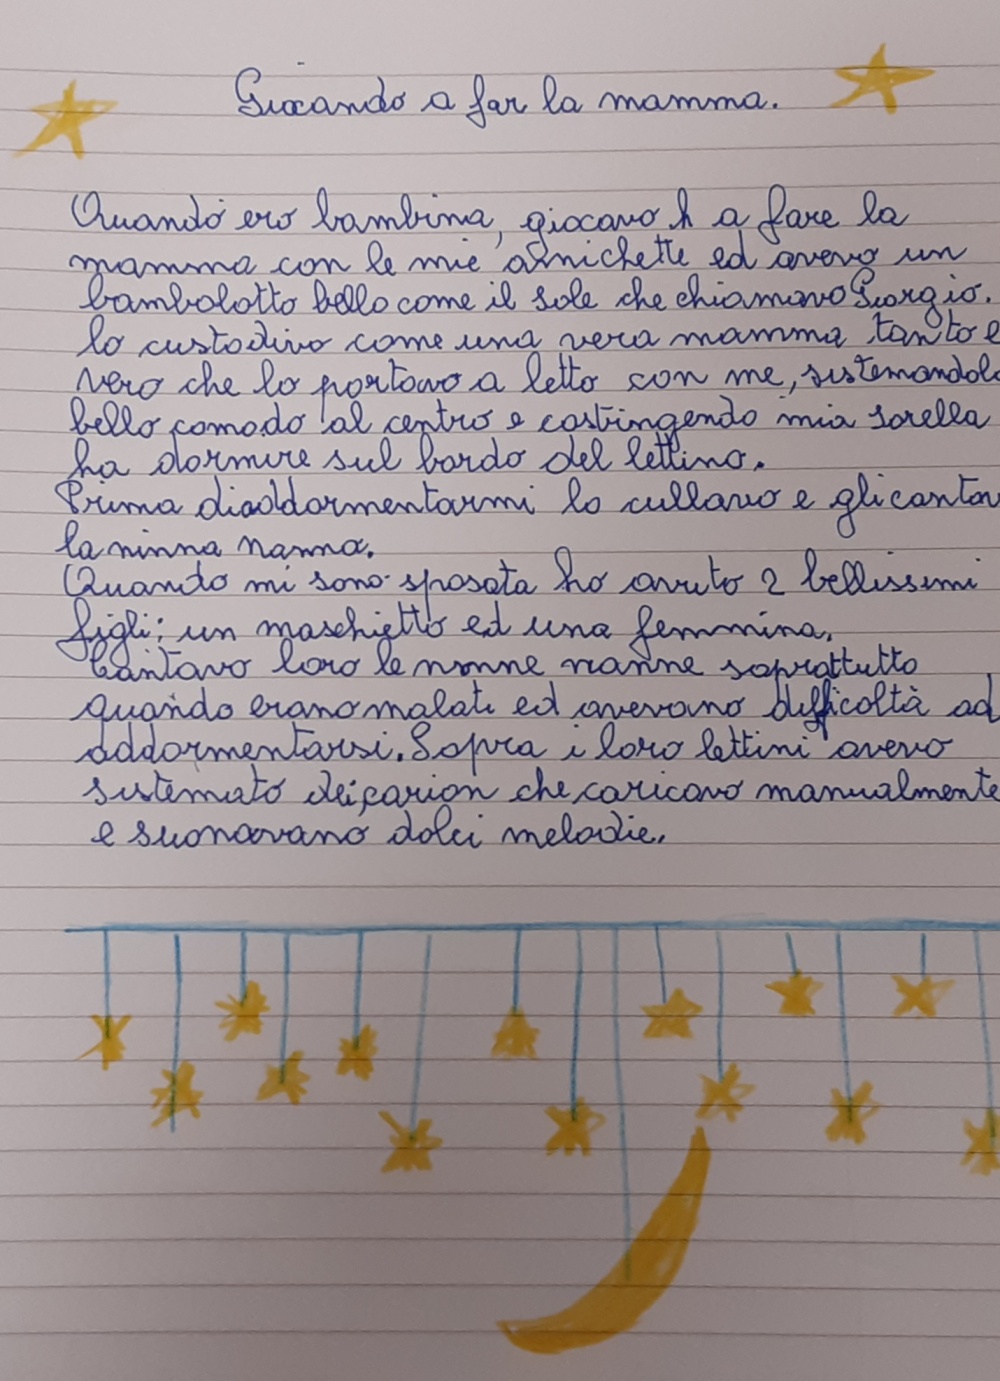 Giocando a far la mamma.
Quando ero bambina, giocavo h a fare la
mamma con le mie amichette ed avevo un
bambolotto bello come il sole che chiamavo Giorgio.
lo custodivo come una vera mamma tanto e
vero che lo portavo a letto con me, sistemandolo
bello comodo al centro e costringendo mia sorella
ha dormire sul bordo del lettino.
Prima di addormentarmi lo cullavo e gli cantav
la ninna nanna.
Quando mi sono sposata ho avuto 2 bellissimi
figli: un maschietto ed una femmina.
Cantavo loro le ninne nanne soprattutto
quando erano malati ed avevano difficoltà ad
addormentarsi. Sopra i loro lettini avevo
sistemato dei carion che caricavo manualmente
e suonavano dolci melodie.